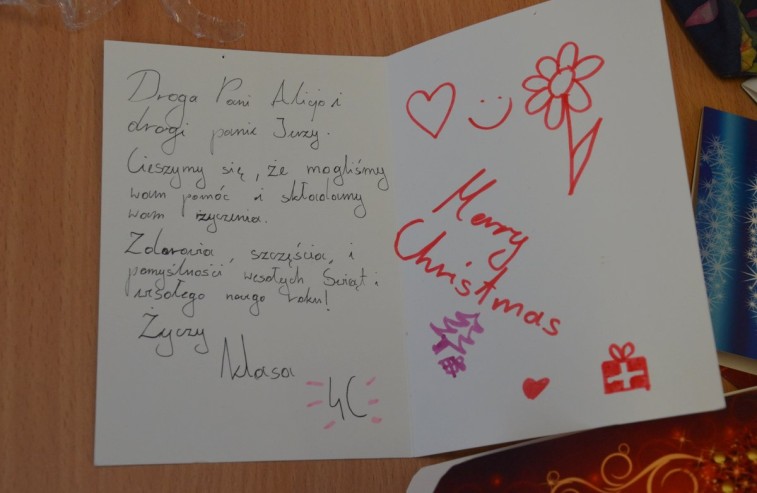 Droga Pani Alicjo i
drogi panie Jerzy.
Cieszymy się, że mogliśmy
wam pomóc i składamy
wam życzenia.
Zdrowia, szczęścia, i
pomyślności wesołych Świąt i
wesołego nowego roku!
Życzy
klasa
4C
Merry
Christmas